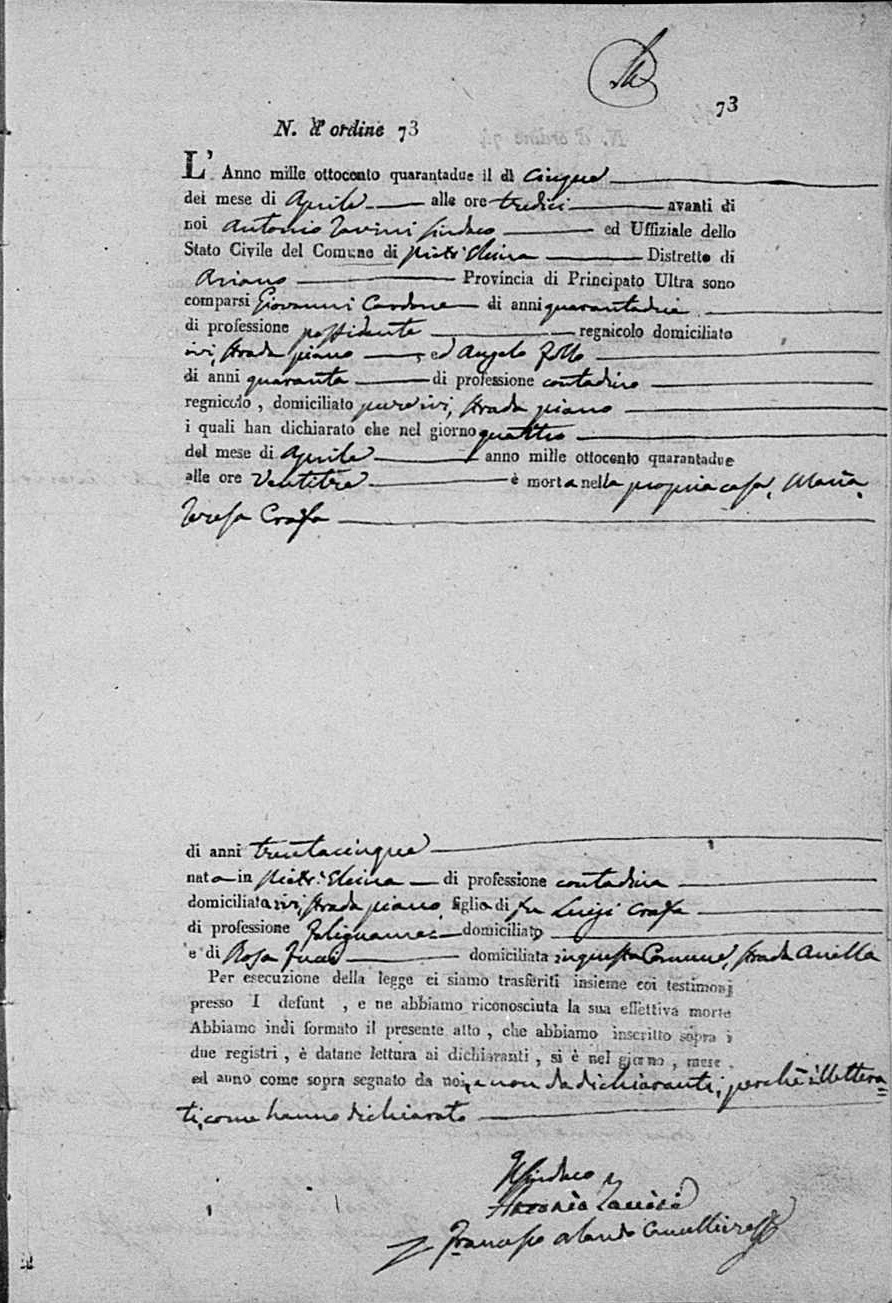 73
N. d'ordine 73
L'Anno mille ottocento quarantadue il dì cinque
del mese di Aprile alle ore tredici avanti di
noi Antonio Sindaco ed Uffiziale dello
Stato Civile del Comune di Distretto di
Ariano Provincia di Principato Ultra sono
comparsi Giovanni Cardone di anni quarantadue
di professione possidente regnicolo domiciliato
ivi, strada piano ed Angelo
di anni quaranta di professione contadino
regnicolo, domiciliato pure ivi, strada piano
i quali han dichiarato che nel giorno quattro
del mese di Aprile anno mille ottocento quarantadue
alle ore ventitre è morta nella propria casa, Maria
Teresa
di anni trentacinque
nata in di professione contadina
domiciliata ivi, strada piano, figlia di fu Luigi
di professione Falegname domiciliato
e di Rosa domiciliata in questa Comune, strada Aniella
Per esecuzione della legge ci siamo trasferiti insieme coi testimonj
presso l defunt , e ne abbiamo riconosciuta la sua effettiva morte
Abbiamo indi formato il presente atto, che abbiamo inscritto sopra i
due registri, è datane lettura ai dichiaranti, si è nel giorno, mese,
ed anno come sopra segnato da noi, e non da dichiaranti, perchè illettera=
ti, come hanno dichiarato
Il Sindaco
Antonio
Francesco